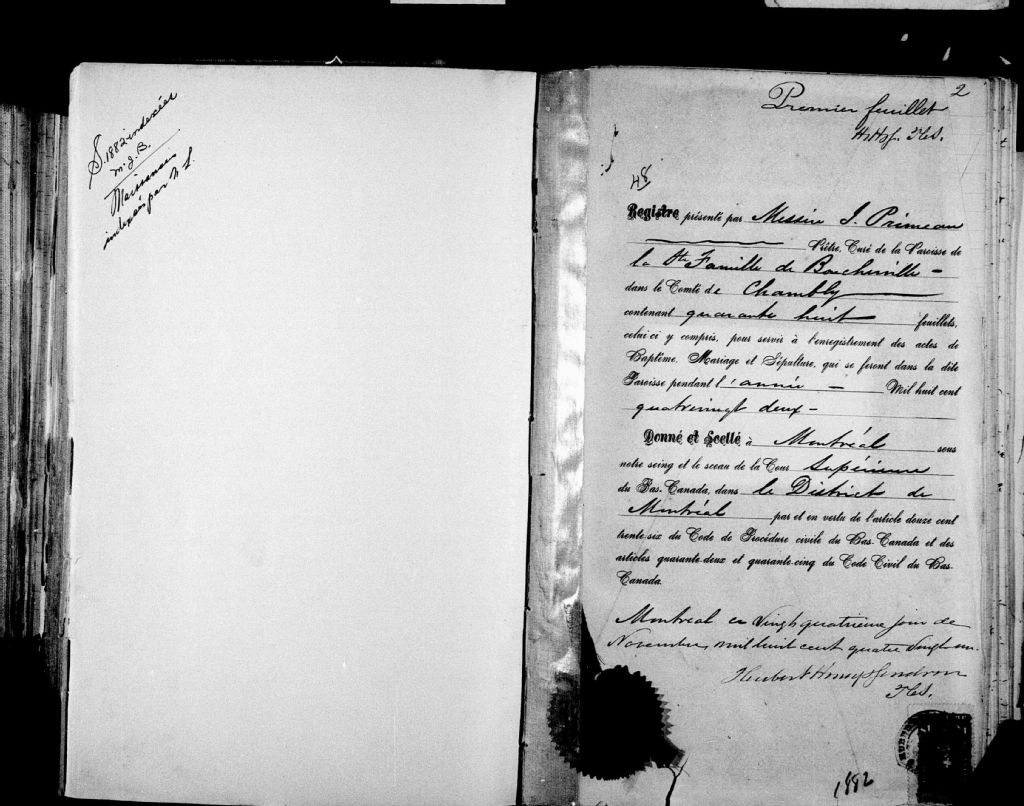 S. 1882 indexées
M. J. B.
Naissances
indexés par N L.
2
Premier feuillet
48
Registre présenté par Messire J. Primeau
Prêtre, Curé de la Paroisse de
la Ste Famille de Boucherville –
dans le Comté de Chambly
contenant quarante huit feuillets,
celui-ci y compris, pour servir à l'enregistrement des actes de
Baptême, Mariage et Sépulture, qui se feront dans la dite
Paroisse pendant l'année – Mil huit cent
quatrevingt deux –
Donné et Scellé à Montréal sous
notre seing et le sceau de la Cour Supérieure
du Bas-Canada, dans le District de
Montréal par et en vertu de l'article douze cent
trente-six du Code de Procédure civile du Bas-Canada et des
articles quarante-deux et quarante-cinq du Code Civil du Bas-
Canada.
Montréal ce Vingt quatrième jour de
Novembre, mil huit cent quatre Vingt un.
1882